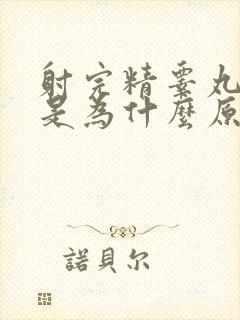 射完精睾丸
是為什麼原
諾貝尔